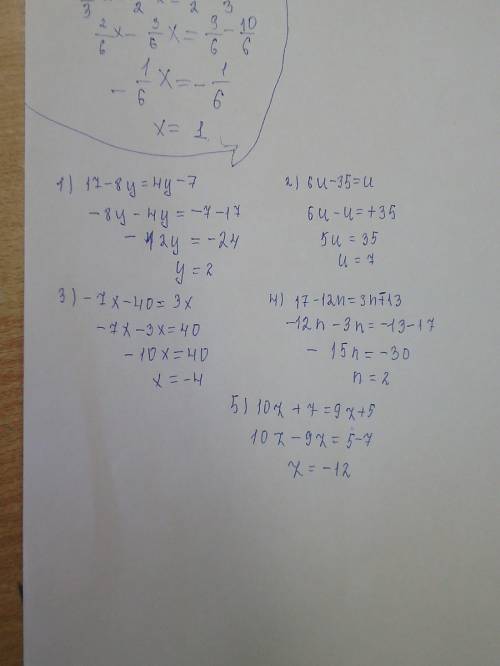 2/6 x - 3/6 x = 9/6 - 10/6
- 1/6 x = - 1/6
x = 1
1) 17-8y=4y-7
-8y-4y=-7-17
-12y=-24
y=2
2) 6u-35=u
6u-u=+35
5u=35
u=7
3) -7x-40=3x
-7x-3x=40
-10x=40
x=-4
4) 17-12n=3n-13
-12n-3n=-13-17
-15n=-30
n=2
5) 10z+7=9z+5
10z-9z=5-7
z=-12